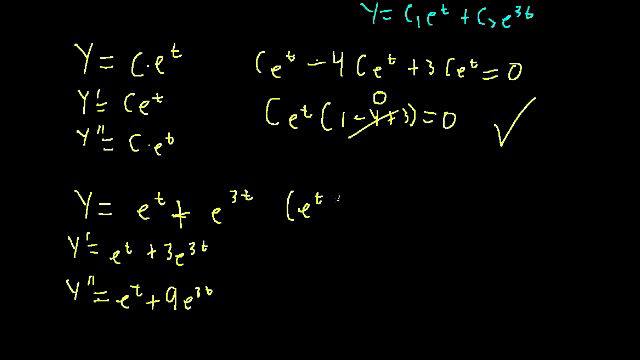 Y = C₁e^t + C₂e^3t
Y = C·e^t
Ce^t - 4Ce^t + 3Ce^t = 0
Y' = Ce^t
0
Ce^t(1-4+3) = 0 ✓
Y'' = C·e^t
Y = e^t + e^3t (e^t
Y' = e^t + 3e^3t
Y'' = e^t + 9e^3t